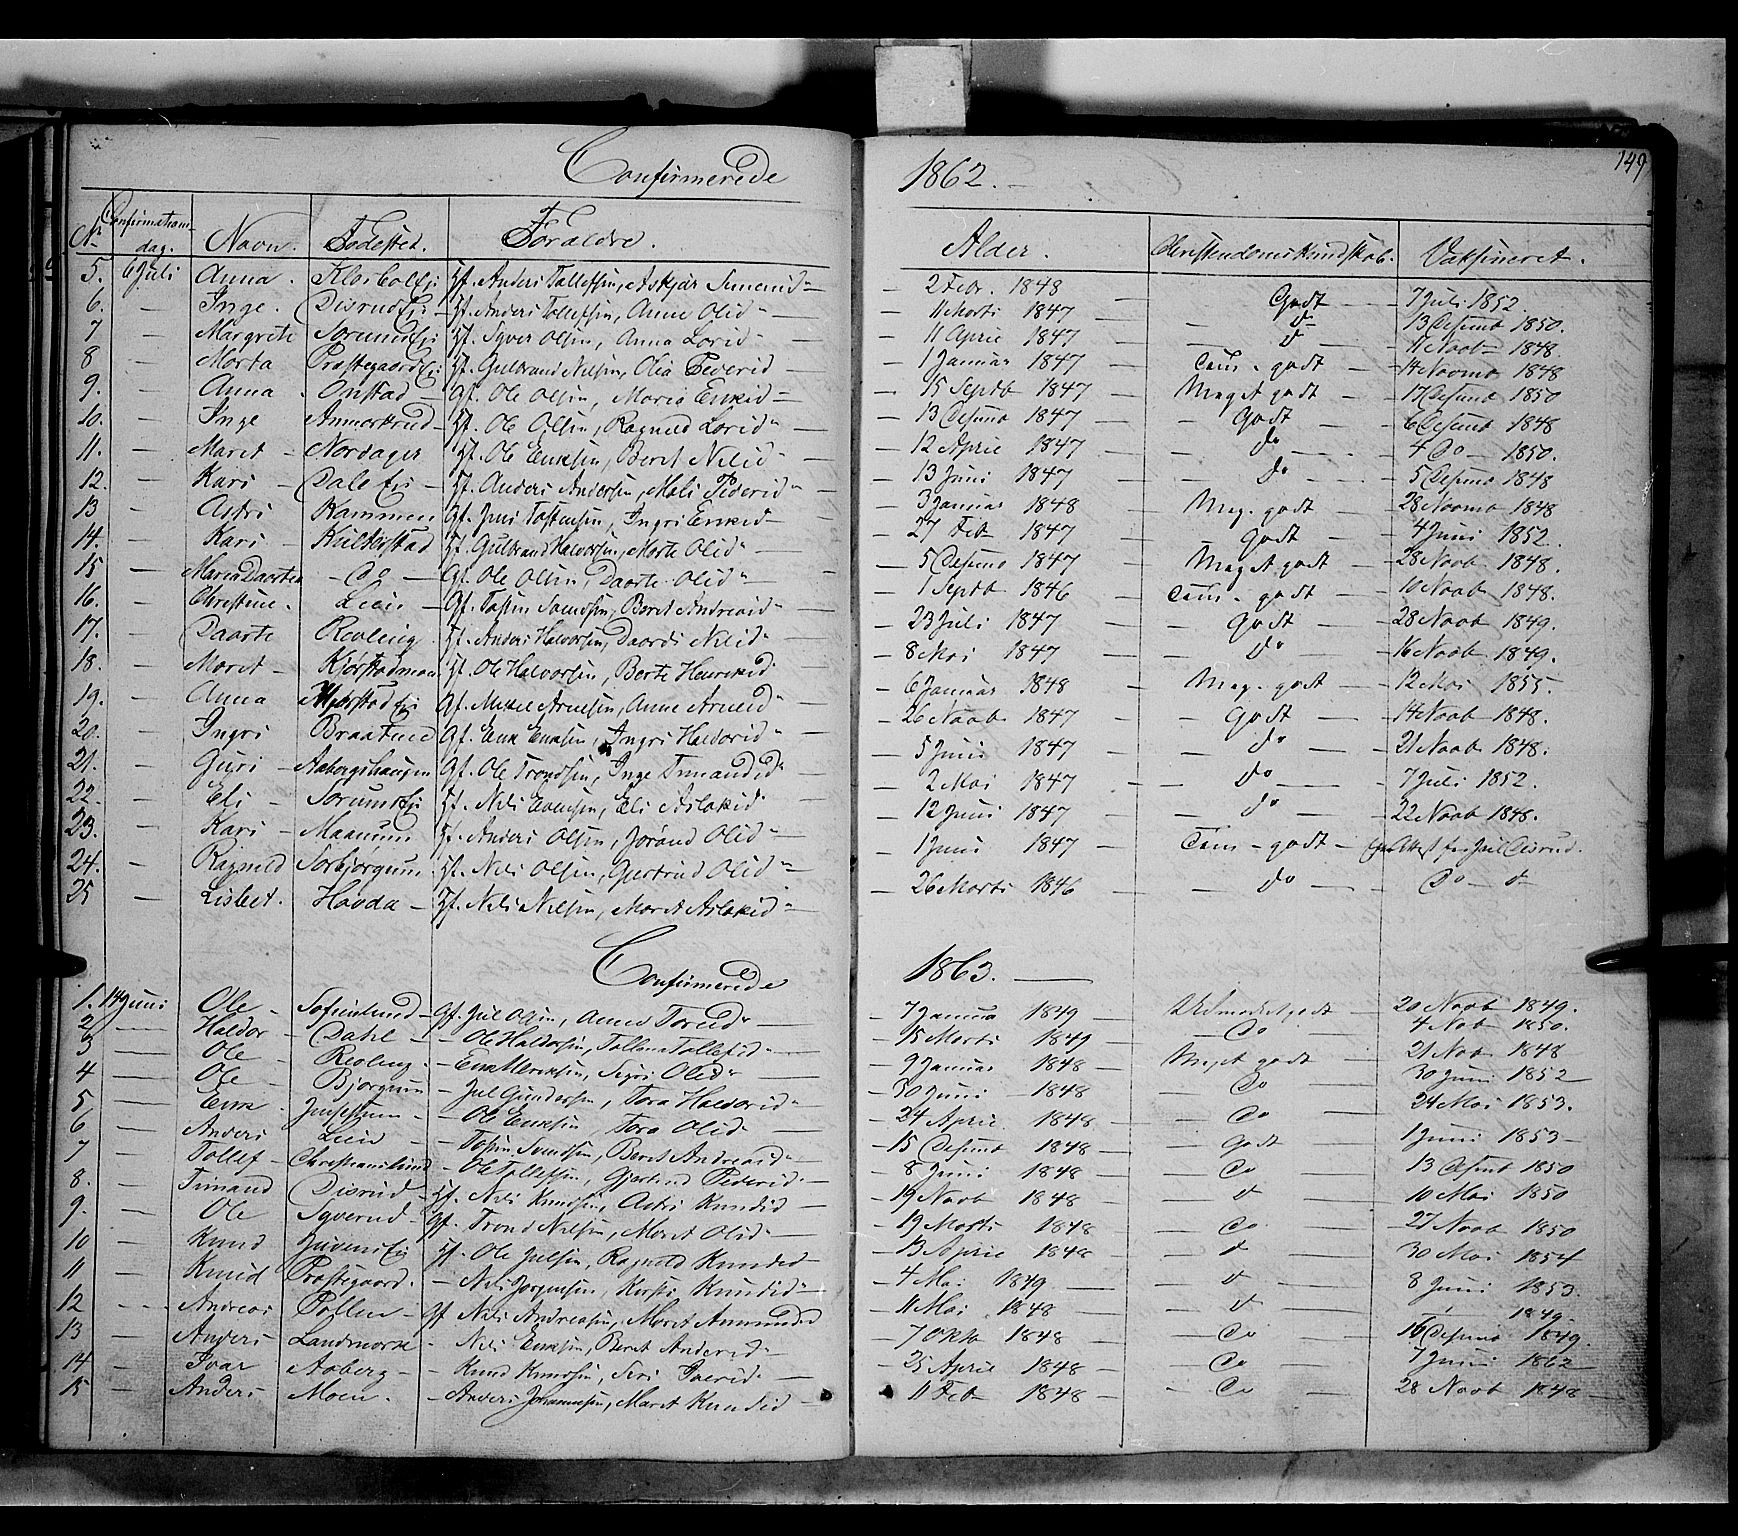 149
Confirmerede 1862.
Nr Confirmationsdag. Navn. Fodested. Foraldre. Alder. Christendoms Kundskab. Vaksineret.
5. 6 Juli Anna. Gf. Anders Tollefsen, 2 Febr. 1848 Godt 7 Juli 1852.
6. Inge. Disrud Ei Gf. Anders Tollefsen, Anne Olsd 11 Marts 1847 do 13 Desemb 1850.
7 Margrete Sorum Ei Gf. Syver Olsen, Anna Larsd 11 April 1847 do 11 Novb 1848.
8 Marta Prestegaard Ei Gf. Gulbrand Nilsen, Olia Pedersd 1 Januar 1847 Tem. godt 14 Novmb 1848
9. Anna Onstad Gf. Ole Olsen, Maria Eriksd 15 Septb 1847 Meget godt 17 Desemb 1850
10. Inge Gf. Ole Olsen, Ragnild Larsd 13 Desemb 1847 Godt 6 Desemb 1848
11. Maret Nordager Gf. Ole Eriksen, Beret Nilsd 12 April 1847 do 4 Do 1850.
12. Kari Dale Ei Gf. Anders Andersen, Mali Pedersd 13 Juni 1847 do 5 Desemb 1848
13 Astri Kammen Gf. Jens Tostensen, Ingri Eriksd 3 Januar 1848 Meg. godt 28 Novmb 1848
14. Kari Kulterstad Gf. Gulbrand Halvorsen, Marte Olsd 27 Feb 1847 Godt 4 Juni 1852.
15 Maria Daartea Do Gf. Ole Olsen, Daarte Olsd 5 Desemb 1847 Meget godt 28 Novb 1848.
16. Christine. Lien Gf. Tosten Svendsen, Beret Andreasd 1 Septb 1846 Tem. godt 10 Novb 1848.
17. Daarte Revling Gf. Anders Halvorsen, Daardi Nilsd 23 Juli 1847 Godt 28 Novb 1849.
18. Maret Gf. Ole Halvorsen, Berte Henriksd 8 Mai 1847 do 16 Novb 1849.
19. Anna Gf. Mikel Arnesen, Anne Arnesd 6 Januar 1848 Meg. godt 12 Mai 1855.
20. Ingri Braatend Gf. Erik Eriksen, Ingri Haldorsd 26 Novb 1847 Godt 14 Novb 1848.
21. Guri Aabergshaugen Gf. Ole Trondsen, Inge 5 Juni 1847 do 21 Novb 1848.
22. Eli Sorums Ei Gf. Nils Evensen, Eli Aslaksd 2 Mai 1847 do 7 Juli 1852.
23. Kari Maanum Gf. Anders Olsen, Jorand Olsd 12 Juni 1847 do 22 Novb 1848.
24. Ragnild Sorbjorgum Gf. Nils Olsen, Gjertrud Olsd 1 Juni 1847 Tem. godt Attest fra Juel Disrud.
25 Lisbet. Havda Gf. Nils Nilsen, Maret Aslaksd 26 Marts 1846 do Do do
Confirmerede 1863.
1. 14 Juni Ole Sofienlund Gf. Juel Olsen, Anne 7 Januar 1849 Udmerket godt 20 Novb 1849.
2 Haldor Dahl Ole Haldorsen, Tollena Tollefsd 15 Marts 1849 Do 4 Nob 1850.
3 Ole Revling. Sigri Olsd 9 Januar 1848 Meget godt 21 Nob 1848
4 Ole Bjorgum Juel Gundersen, Tora Haldorsd 30 Juni 1848 Do 30 Juni 1852
5 Erik Ole Eriksen, Tora Olsd 24 April 1848 Do 24 Mai 1853.
6 Anders Lien Tosten Svendsen, Beret Andreasd 15 Desemb 1848 Godt 1 Juni 1853
7 Tollef Christianslund Ole Tollefsen, Gjertrud Pedersd 8 Juni 1848 Do 13 Desmb 1850
8. Timand Disrud Gf. Nils Knudsen, Astri Knudsd 19 Novb 1848 do 10 Mai 1850
9. Ole Syverud Gf. Trond Nilsen, Maret Olsd 19 Marts 1848 Do 27 Novb 1850
10 Knud Gf. Ole Julsen, Ragnild Knudsd 13 April 1848 do 30 Mai 1854
11 Knud Prestegaard. Nils Jorgensen, Kersti Knudsd 4 Mai 1849 do 8 Juni 1853.
12 Andreas Pollen Gf Nils Andreasen, Maret Amundsd 11 Mai 1848 do 1849.
13 Anders Landmark Nils Eriksen, Beret Andersd 7 Oktb 1848 Do 16 Desemb 1849.
14 Ivar Aaberg Knud Knudsen, Siri Iversd 25 April 1848 Do 7 Juni 1862
15 Anders Moen. Anders Johannesen, Maret Knudsd 11 Feb 1848 Do 28 Novb 1848